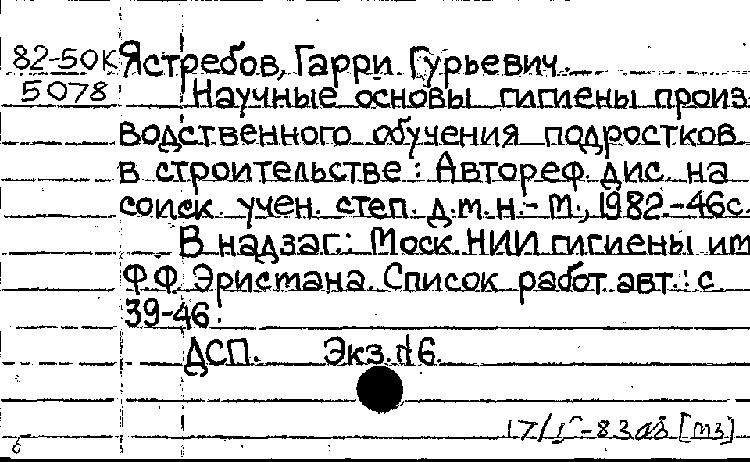 82-50К Ястребов, Гарри Гурьевич.
5078 Научные основы гигиены произ
водственного обучения подростков
в строительстве: Автореф. дис. на
соиск. учен. степ. д.м.н.- М., 1982.-46с.
В надзаг.: Моск. НИИ гигиены им
Ф.Ф. Эристана. Список работ авт.: с.
39-46.
ДСП. Экз. №6.